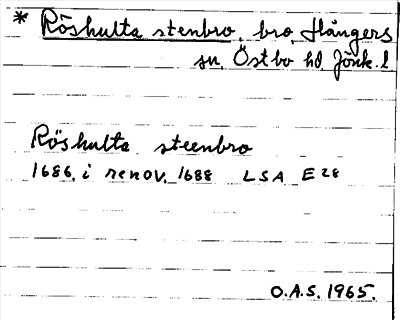 * Röshulta stenbro, bro, Hångers
sn, Östbo hd, Jönk. l
Röshulta steenbro
1686, i renov. 1688 LSA E28
O.A.S. 1965.